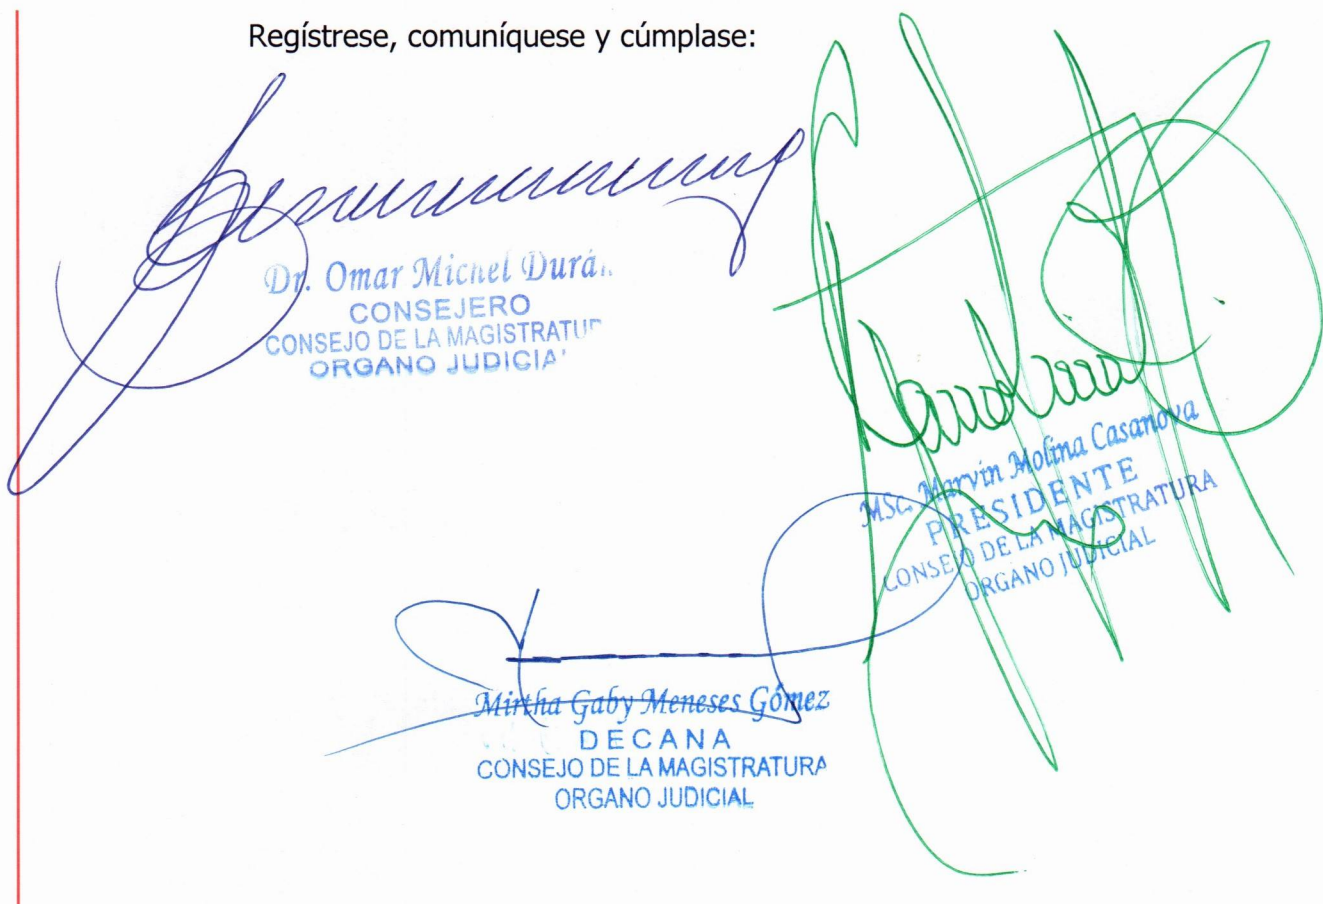 Regístrese, comuníquese y cúmplase:
Dr. Omar Michel Durán
CONSEJERO
CONSEJO DE LA MAGISTRATUR
ORGANO JUDICIA
MSc. Marvin Molina Casanova
PRESIDENTE
CONSEJO DE LA MAGISTRATURA
ORGANO JUDICIAL
Mirtha Gaby Meneses Gómez
DECANA
CONSEJO DE LA MAGISTRATURA
ORGANO JUDICIAL